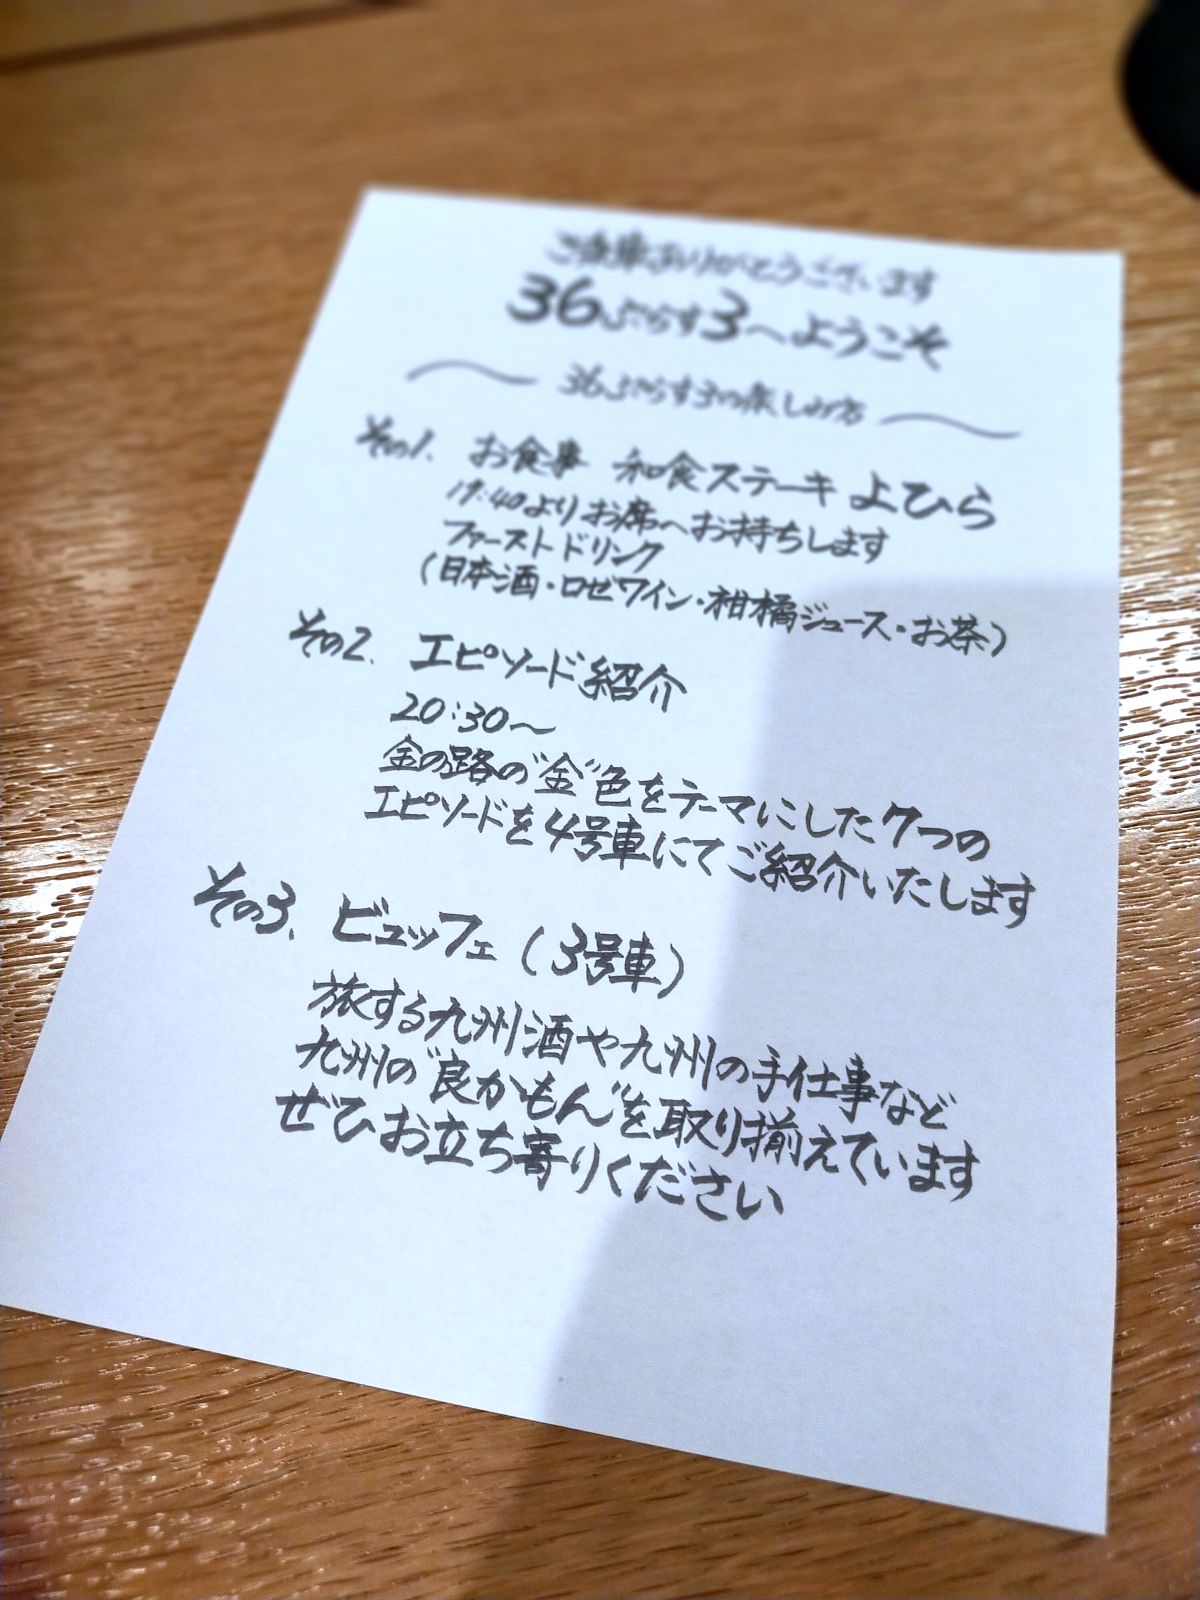 ご乗車ありがとうございます
36ぷらす3へようこそ
〜 36ぷらす3の楽しみ方 〜
その1、お食事 和食ステーキ よひら
19:40よりお席へお持ちします
ファーストドリンク
(日本酒・ロゼワイン・柑橘ジュース・お茶)
その2、エピソード紹介
20:30〜
金の路の"金"色をテーマにした7つの
エピソードを4号車にてご紹介いたします
その3、ビュッフェ(3号車)
旅する九州酒や九州の手仕事など
九州の"良かもん"を取り揃えています
ぜひお立ち寄りください